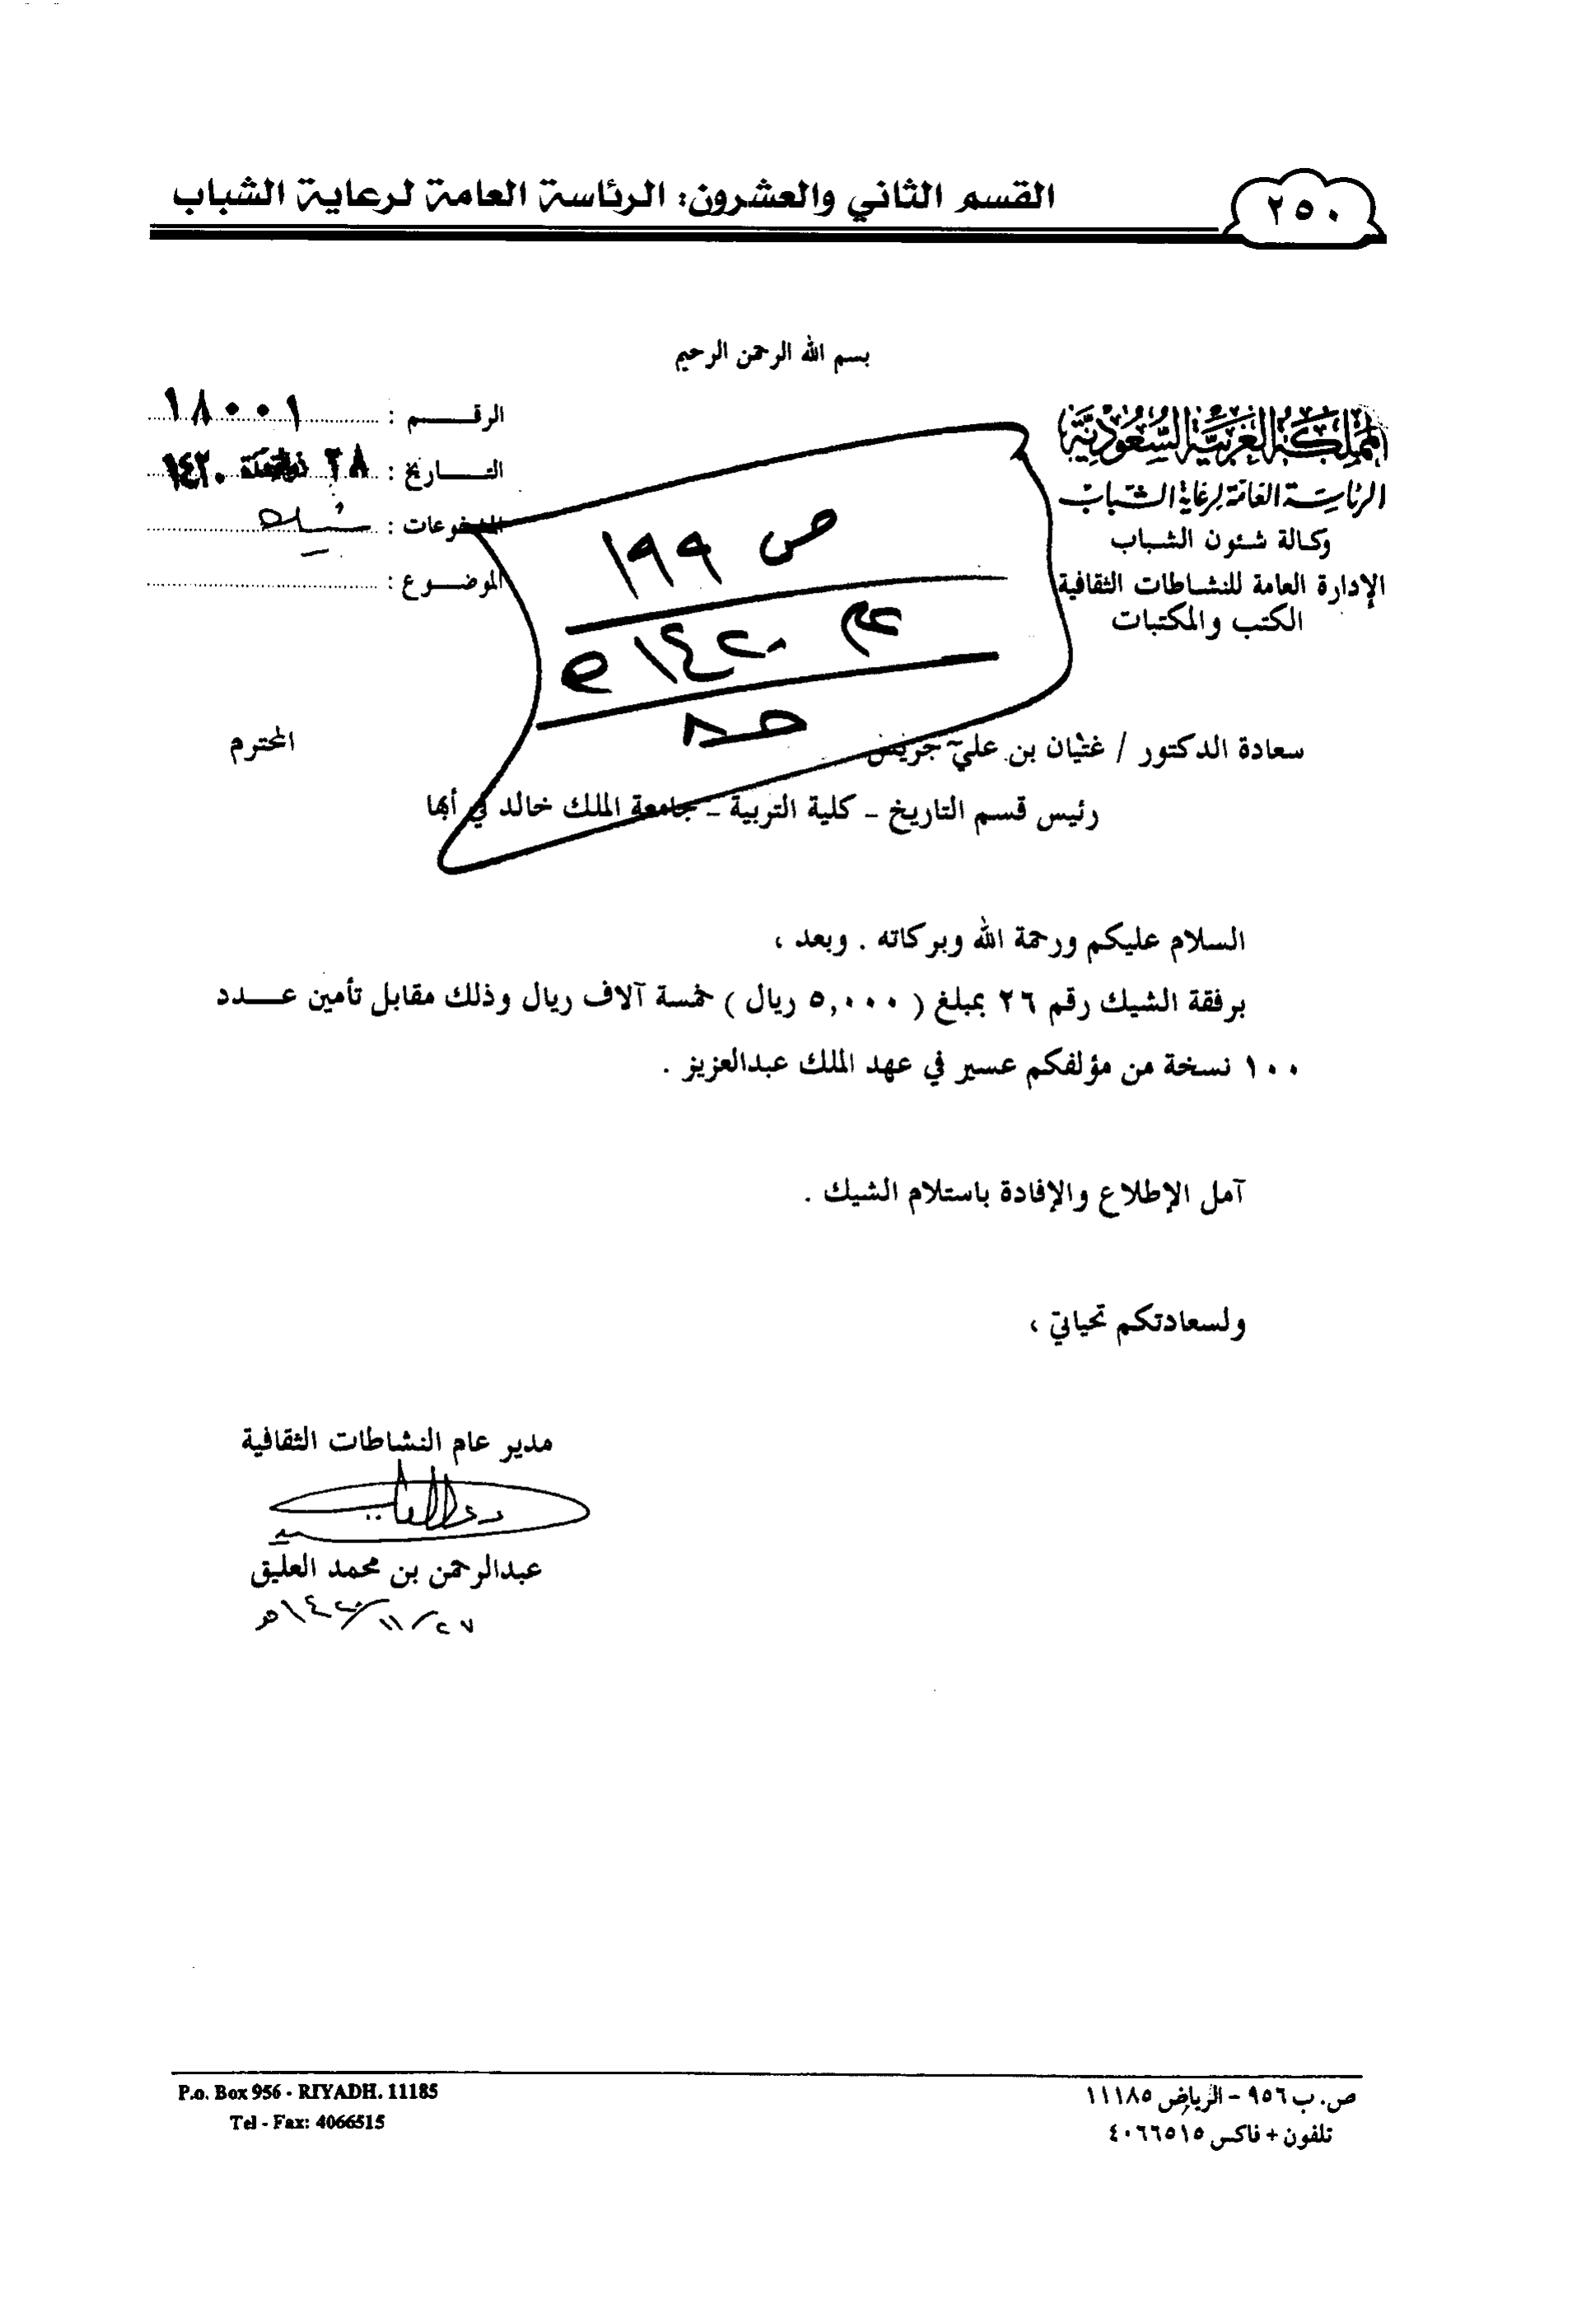 ٢٥٠
القسم الثاني والعشرون: الرئاسة العامة لرعاية الشباب
بسم الله الرحمن الرحيم
المملكة العربية السعودية
الرئاسة العامة لرعاية الشباب
وكالة شئون الشباب
الإدارة العامة للنشاطات الثقافية
الكتب والمكتبات
الرقـــم : ١٨٠٠١
التـــاريخ : ٢٨ ذو القعدة ١٤٢٠
المدفوعات : شيك
الموضـــوع :
ص ١٩٩
عام ١٤٢٠هـ
سعادة الدكتور / غثيان بن علي جريس المحترم
رئيس قسم التاريخ – كلية التربية – جامعة الملك خالد في أبها
السلام عليكم ورحمة الله وبركاته . وبعد ،
برفقة الشيك رقم ٢٦ بمبلغ ( ٥,٠٠٠ ريال ) خمسة آلاف ريال وذلك مقابل تأمين عـــدد
١٠٠ نسخة من مؤلفكم عسير في عهد الملك عبدالعزيز .
آمل الإطلاع والإفادة باستلام الشيك .
ولسعادتكم تحياتي ،
مدير عام النشاطات الثقافية
عبدالرحمن بن محمد العليق
٢٧/١١/١٤٢٠هـ
ص.ب ٩٥٦ – الرياض ١١١٨٥
تلفون + فاكس ٤٠٦٦٥١٥
P.o. Box 956 - RIYADH. 11185
Tel - Fax: 4066515